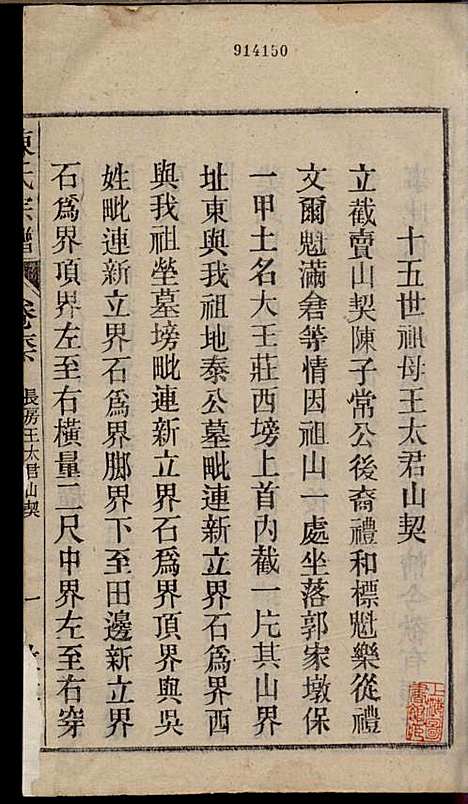 914150
十五世祖母王太君山契
立截賣山契陳子常公後裔禮和標魁樂從禮
文爾魁滿舍等情因祖山一處坐落郭家墩保
一甲土名大王莊西塝上首內截一片其山界
址東與我祖地泰公墓毗連新立界石爲界西
與我祖塋墓塝毗連新立界石爲界頂界與吳
姓毗連新立界石爲界脚界下至田邊新立界
石爲界頂界左至右橫量二尺中界左至右穿
陳氏宗譜
長房王太君山契
一